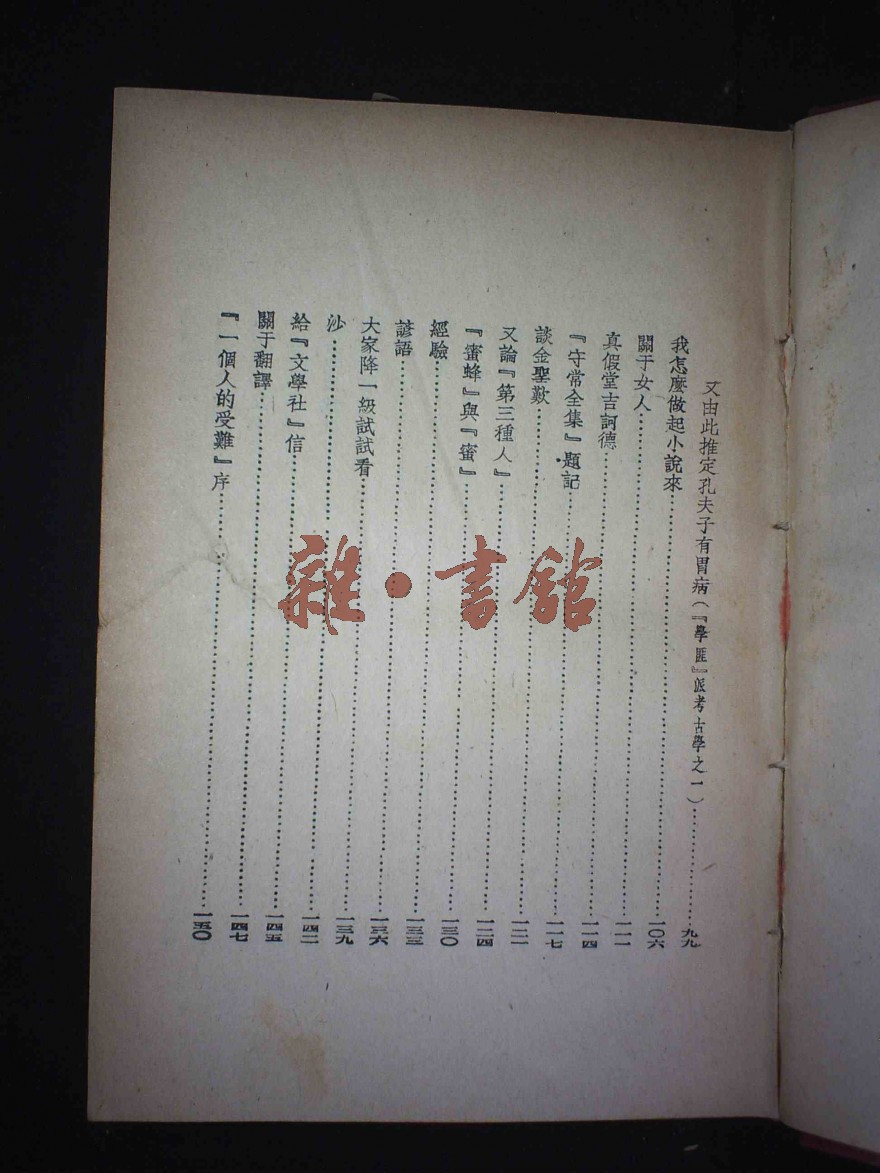 又由此推定孔夫子有胃病(『學匪』派考古學之一)……九九
我怎麼做起小說來……一〇六
關于女人……一一一
真假堂吉訶德……一一四
『守常全集』題記……一一七
談金聖歎……一二一
又論『第三種人』……一二四
『蜜蜂』與『蜜』……一三〇
經驗……一三三
諺語……一三六
大家降一級試試看……一三九
沙……一四二
給『文學社』信……一四五
關于翻譯……一四七
『一個人的受難』序……一五〇
雜·書館